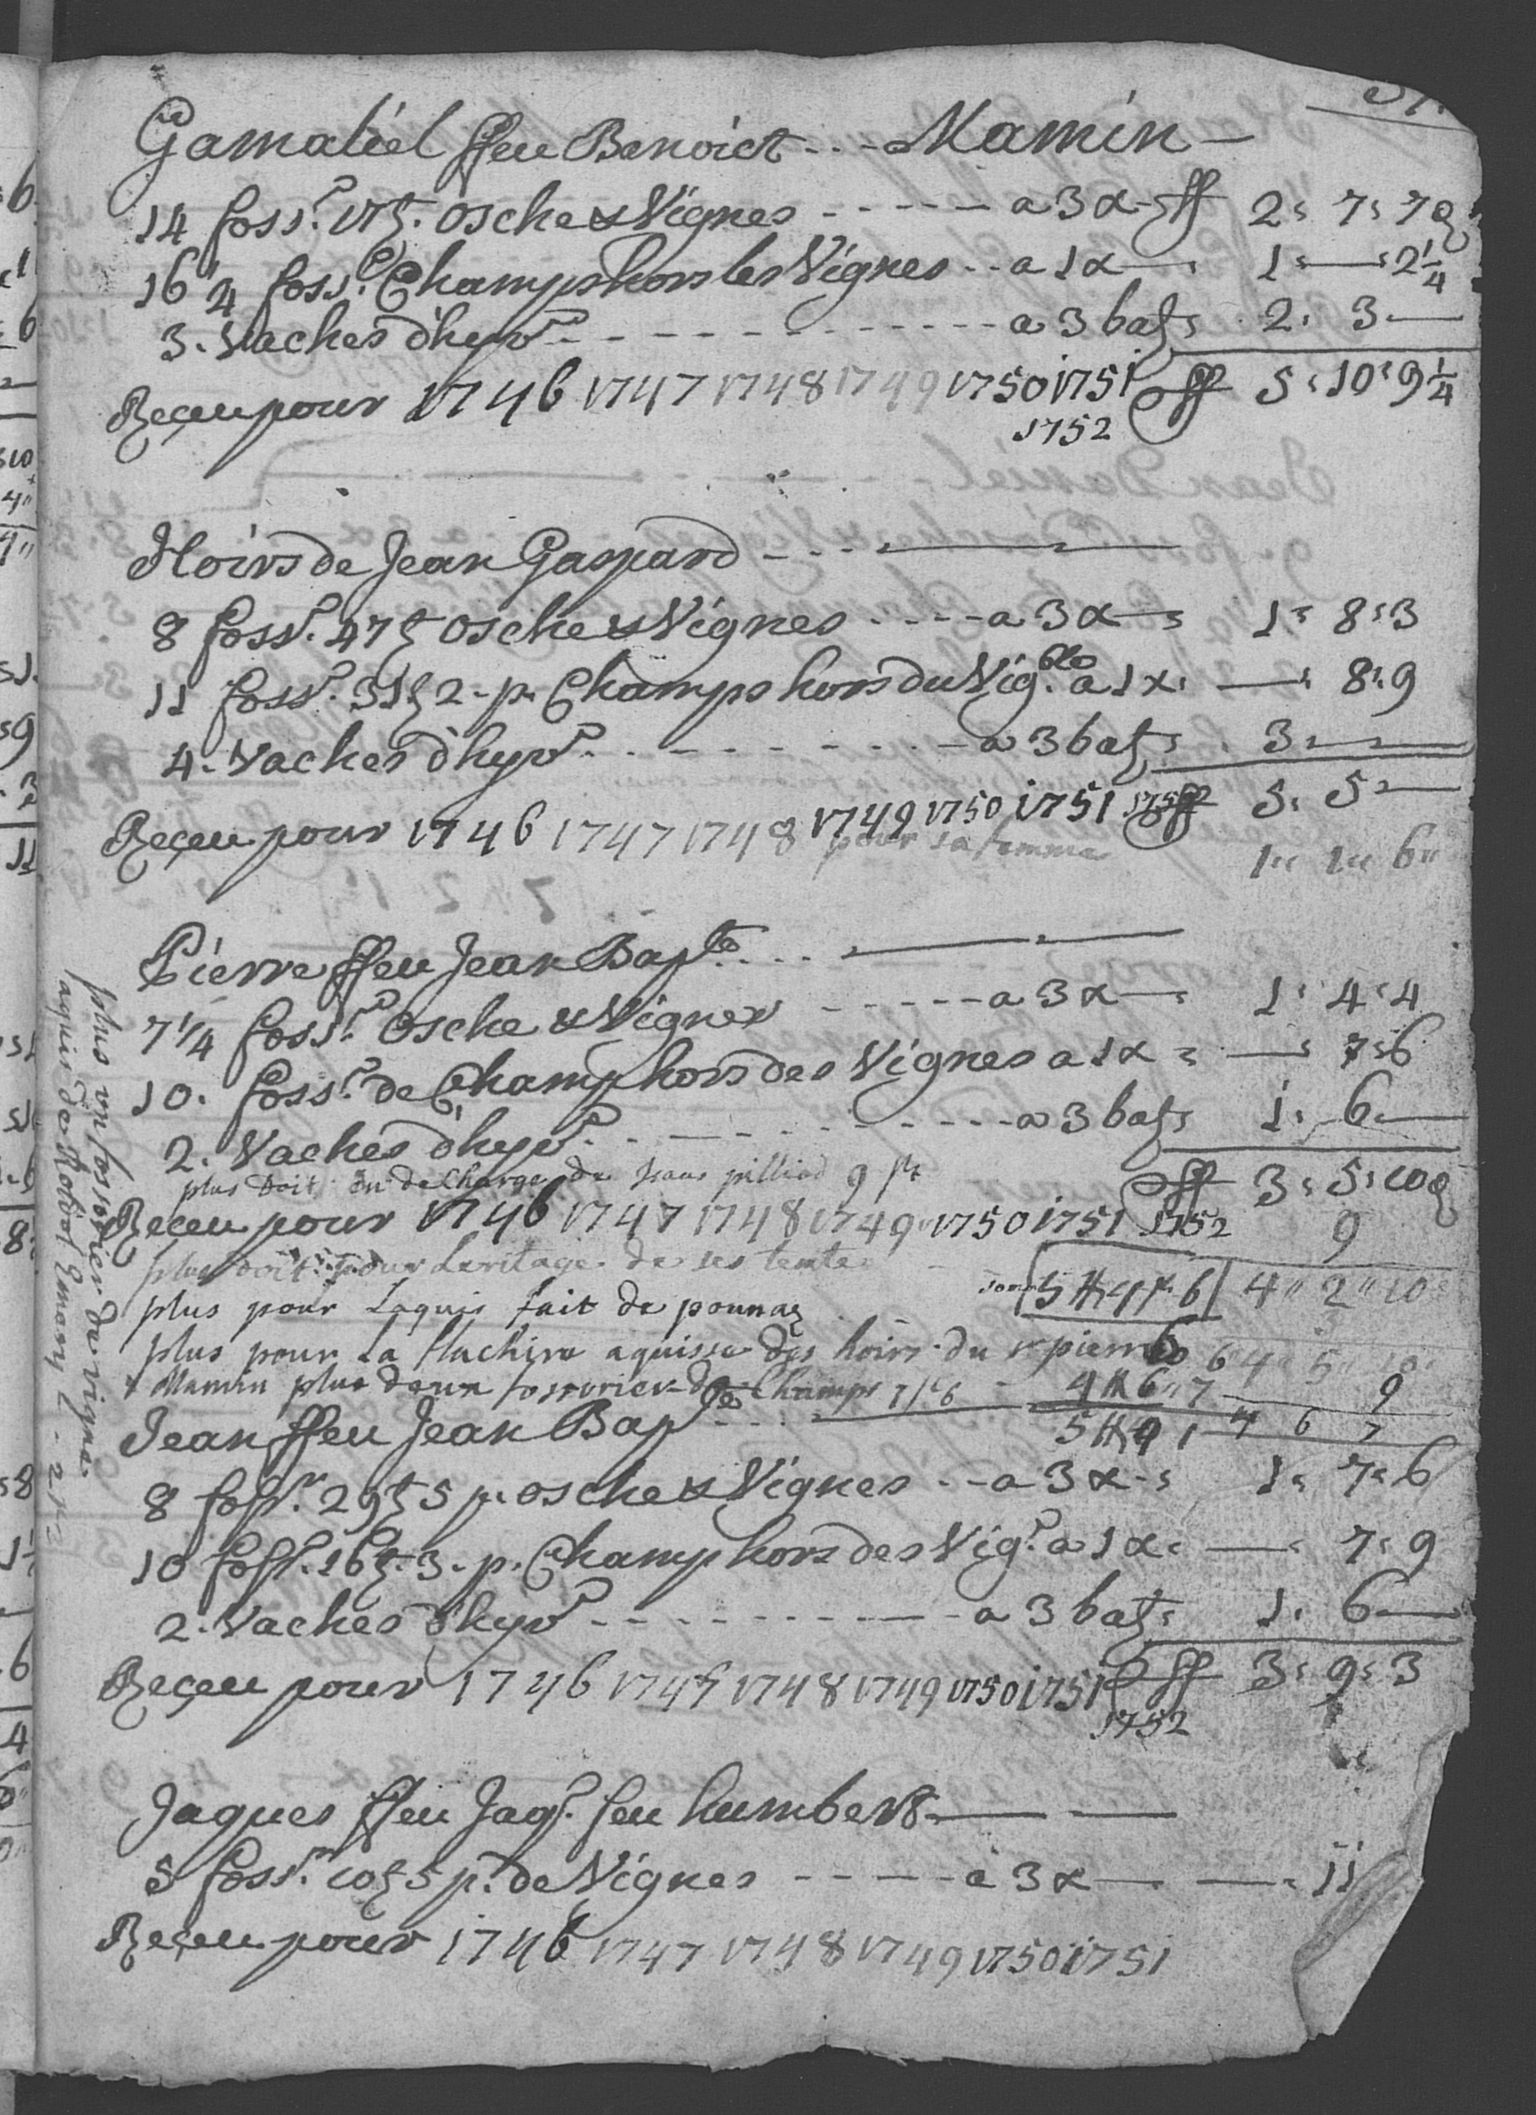 Gamaliel ffeu Benoict - - - Mamin -
14 foss.r 17 t. Osche & Vignes - - - - - a 3 x - ff 2 : 7 : 7
16 1/4 foss.r Champs hors les Vignes - - a 1 x 1 : — : 2 1/4
3. Vaches d'hyv.r - - - - - - - a 3 batz 2 : 3 : —
Reçeu pour 1746 1747 1748 1749 1750 1751 ff 5 : 10 : 9 1/4
1752
Hoirs de Jean Gaspard - - -
8 foss.r 47 t Osche & Vignes - - - - a 3 x 1 : 8 : 3
11 foss.r 31 t 2 - p. Champs hors du Vig.ble a 1 x : — : 8 : 9
4. Vaches d'hyv.r - - - - - - - a 3 batz 3 : — : —
Reçeu pour 1746 1747 1748 1749 1750 1751 1752 ff 5 : 5 : —
pour sa femme 1 " 1 " 6 "
Pierre ffeu Jean Bap.te - - - -
7 1/4 foss.r Osche & Vignes - - - - - a 3 x 1 : 4 : 4
10. foss.r de Champ hors des Vignes a 1 x : — : 7 : 6
2. Vaches d'hyv.r - - - - - - - a 3 batz 1 : 6 : —
plus doit en decharge de 9
ff 3 : 5 : 10
Reçeu pour 1746 1747 1748 1749 1750 1751 1752 9
plus doit pour Leritage de ses tente 5 4 6 4 " 2 " 10
plus pour Laquis fait de
plus pour La aquisse des hoirs du Sr pierre 6 4 " 5 " 10
Mamin plus deux fossorier de Champs 4 6 " 7 9
Jean ffeu Jean Bap.te - - - - 5 9 1 4 6 7
8 foss.r 29 t 5 p. Osche & Vignes - - a 3 x : 1 : 7 : 6
10 foss.r 16 t. 3 - p. Champ hors des Vig.s a 1 x : — : 7 : 9
2. Vaches d'hyv.r - - - - - - - a 3 batz 1 : 6 : —
Reçeu pour 1746 1747 1748 1749 1750 1751 ff 3 : 9 : 3
1752
Jaques ffeu Jaq.s feu humbert
5 foss.r 10 t 5 p. de Vignes - - - - a 3 x — : 11
Reçeu pour 1746 1747 1748 1749 1750 1751
plus un fossorier de vigne
aquis de